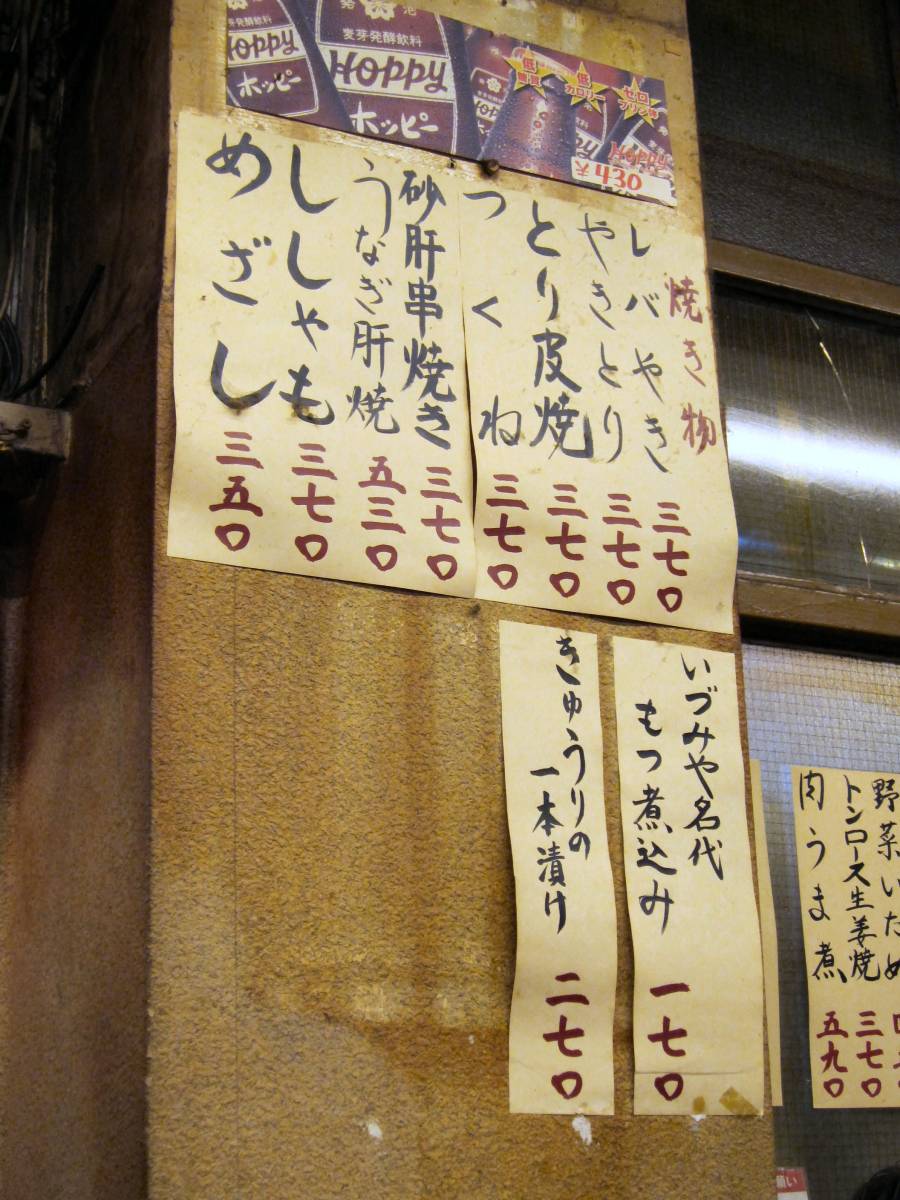 発 泡
麦芽発酵飲料
Hoppy
ホッピー
麦芽発酵飲料
Hoppy
ホッピー
低
糖質
低
カロリー
ゼロ
プリン体
Hoppy
¥430
焼き物
レバやき 三七〇
やきとり 三七〇
とり皮焼 三七〇
つくね 三七〇
砂肝串焼き 三七〇
うなぎ肝焼 五三〇
ししゃも 三七〇
めざし 三五〇
いづみや名代
もつ煮込み 一七〇
きゅうりの
一本漬け 二七〇
野菜いため
トンロース生姜焼 三七〇
肉うま煮 五九〇
願い